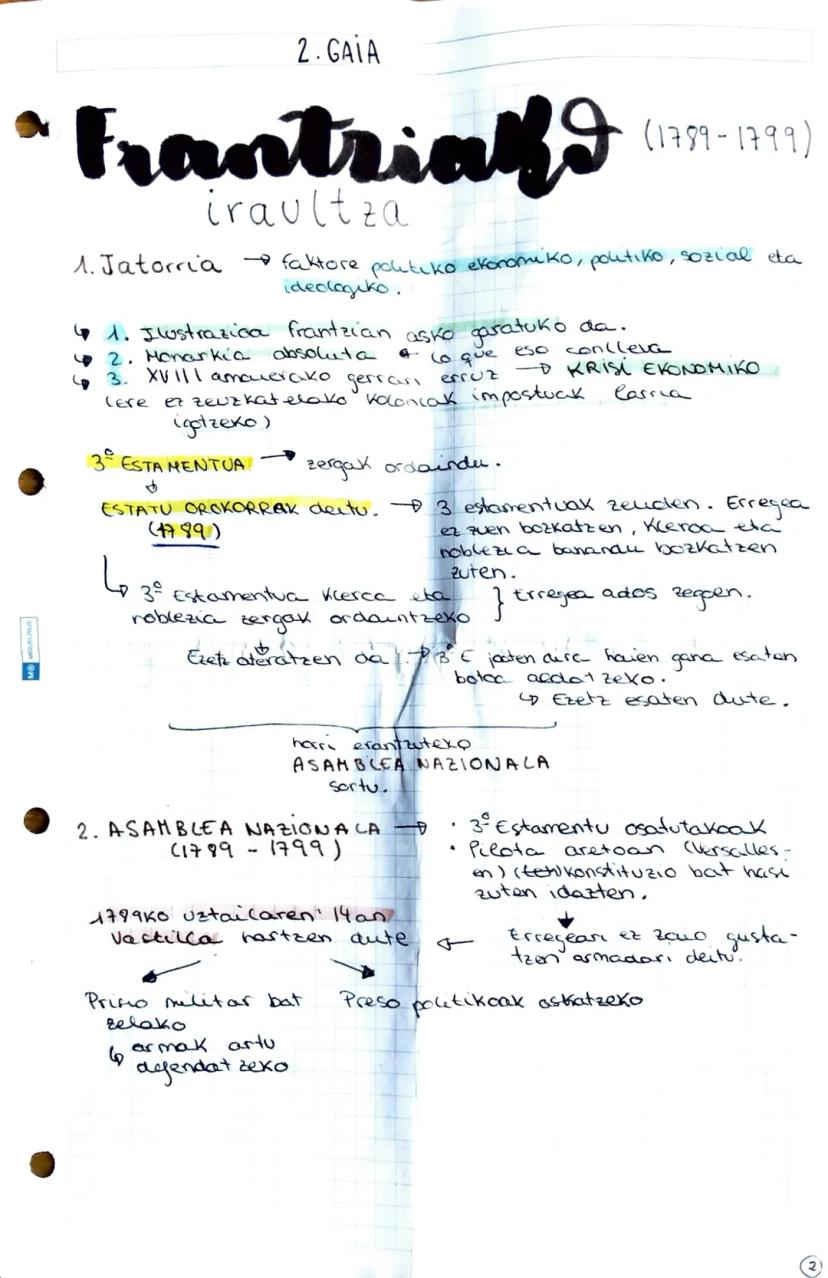 2. GAIA
Frantziako (1789-1799)
iraultza
1. Jatorria → faktore politiko ekonomiko, politiko, sozial eta
ideologiko.
↳ 1. Ilustrazioa frantzian asko garatuko da.
↳ 2. Monarkia absoluta + lo que eso conlleva
↳ 3. XVIII amauerako gerrari erruz → KRISI EKONOMIKO
(ere ez zeuzkatelako koloniak impostuak
igotzeko)
3º ESTAMENTUA → zergak ordaindu.
↓
ESTATU OROKORRAK deitu. → 3 estamentuak zeuden. Erregea
(1789) ez zuen bozkatzen, Kleroa eta
noblezia banandu bozkatzen
zuten.
↳ 3º Estamentua kleroa eta } Erregea ados zegoen.
noblezia zergak ordaintzeko
↓
Ezetz ateratzen da → 3º E joaten dira haien gana esaten
botoa aldatzeko.
↳ Ezetz esaten dute.
horri erantzuteko
ASAMBLEA NAZIONALA
sortu.
2. ASAMBLEA NAZIONALA → · 3º Estamentu osatutakoak
(1789 - 1799) · Pilota aretoan (Versalles-
en) konstituzio bat hasi
zuten idazten.
↓
1789ko uztailaren 14an
Vastilla hartzen dute ← Erregeari ez zaio gusta-
tzen armadari deitu.
Prisio militar bat Preso politikoak askatzeko
zelako
↳ armak artu
defendatzeko
MIQUELRIUS
2